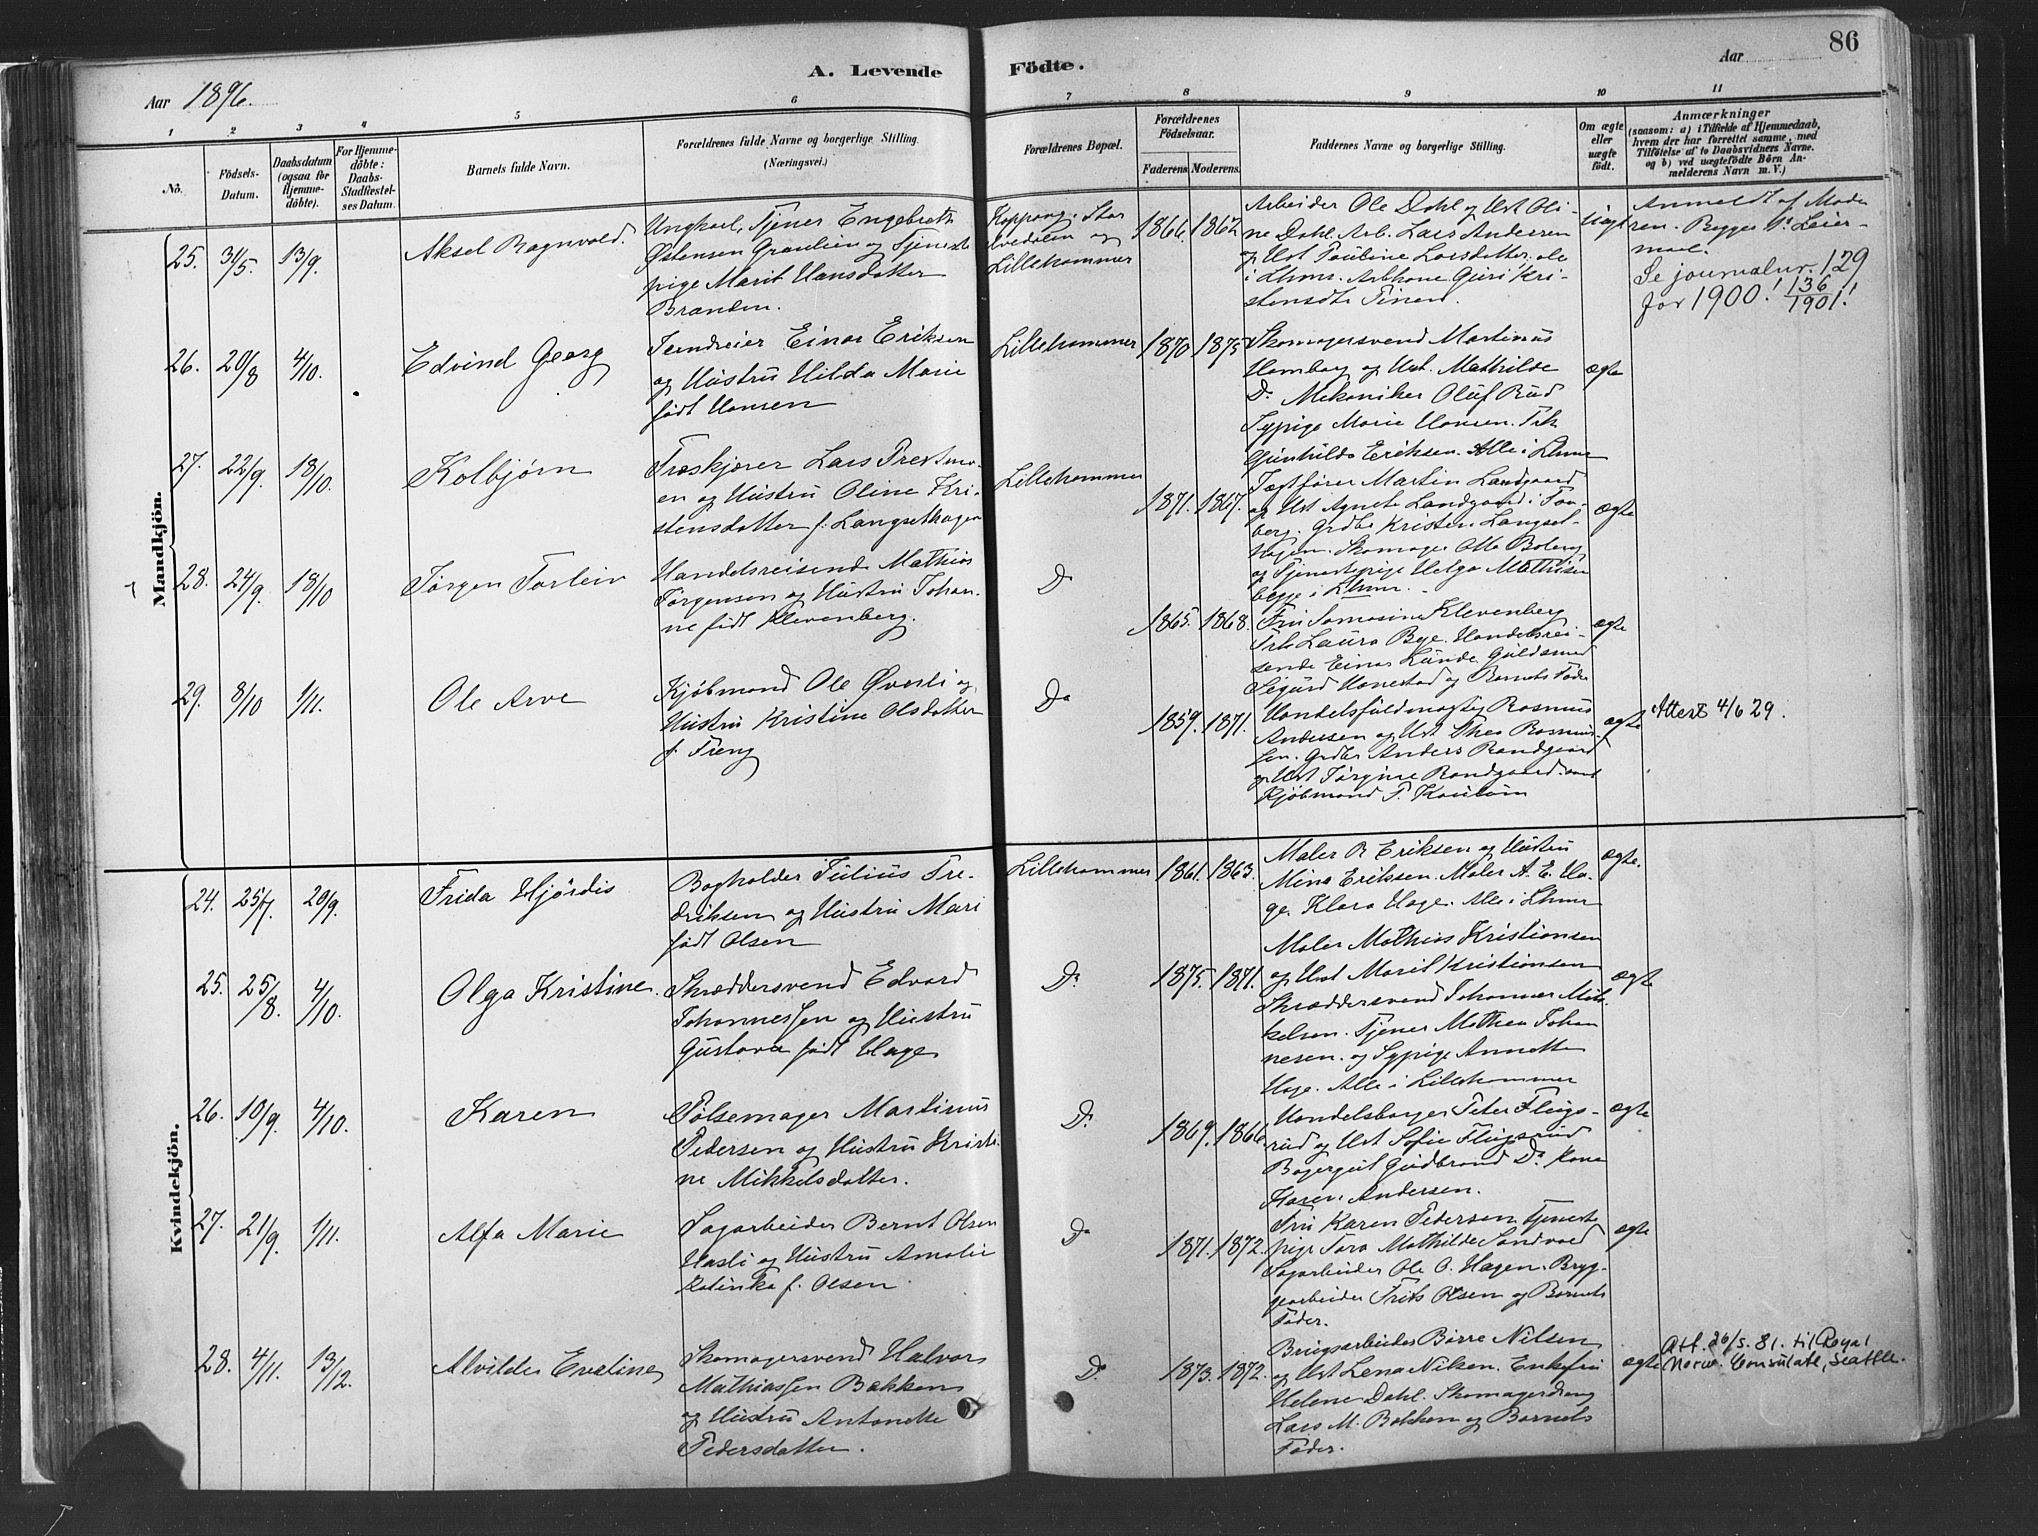 86
A. Levende Födte.
Aar 1896.
Aar
1 2 3 4 5 6 7 8 9 10 11
No.
Födsels-
Datum.
Daabsdatum
(ogsaa for
Hjemme-
döbte).
For Hjemme-
döbte:
Daabs-
Stadfæstel-
ses Datum.
Barnets fulde Navn.
Forældrenes fulde Navne og borgerlige Stilling.
(Næringsvei.)
Forældrenes Bopæl.
Forældrenes
Födselsaar.
Faderens. Moderens.
Faddernes Navne og borgerlige Stilling.
Om ægte
eller
uægte
födt.
Anmærkninger
(saasom: a) i Tilfælde af Hjemmedaab,
hvem der har forrettet samme, med
Tilföielse af to Daabsvidners Navne.
og b) ved uægtefödte Börn An-
melderens Navn m. V.)
Mandkjön.
25. 31/5. 13/9.
Aksel Ragnvald.
Ungkarl, Tjener Engebret
Østensen Graulien og Tjeneste
pige Marit Hansdatter
Branden.
Koppang. Stor
elvedalen og
Lillehammer
1866. 1862
Arbeider Ole Dahl og Ust Oli-
ne Dahl. Arb. Lars Andersen
og Ust Pauline Larsdatter. alle
i Lhmr. Arbkone Guri Kri-
stensdtr
uægte
Anmeldt af Mode
ren. Begges 1ste Leier-
maal.
Se journalnr. 129
for 1900! 136/1901!
26. 20/8 4/10.
Edvind Georg
Jerndreier Einar Eriksen
og Hustru Hilda Marie
født Hansen
Lillehammer
1870 1875
Skomagersvend Martinus
Homborg og Ust. Mathilde
Do. Mekaniker Oluf Rud
Sypige Marie Hansen. Frk
Gunhilda Eriksen. Alle i Lhmr
ægte
27. 22/9. 18/10.
Kolbjørn
Træskjærer Lars Prestmo-
en og Hustru Oline Kri-
stensdatter f. Langsethagen
Lillehammer
1871. 1867.
Jægtfører Martin Landgaard
og Ust Agnete Landgaard i Faa-
berg. Grdbr Kristen Langset-
hagen. Skomager Otto Boberg
og Tjenestepige Helga Mathisen
begge i Lhmr.
ægte
28. 24/9. 18/10
Jørgen Torleiv
Handelsreisende Mathias
Jørgensen og Hustru Johan-
ne født Klevenberg.
Do
1865. 1868.
Fru Samosine Klevenberg
Frk Laura Bye. Handelsrei-
sende Einar Lunde. Guldsmed
Sigurd Hanestad og Barnets Fader
ægte
29. 8/10 1/11.
Ole Arve
Kjøbmand Ole Øverli og
Hustru Kristine Olsdatter
f. Freng
Do
1859. 1871.
Handelsfuldmægtig Rasmus
Andersen og Ust Thea Rasmus-
sen. Grdbr Anders Randgaard
og Ust Jørgine Randgaard. samt
Kjøbmand P.
ægte
Attest 4/6 29.
Kvindekjön.
24. 25/7. 20/9.
Frida Hjørdis
Bogholder Julius Fre-
driksen og Hustru Mari
født Olsen
Lillehammer
1861. 1863.
Maler R. Eriksen og Hustru
Mina Eriksen. Maler A. E. Ha-
ge. Klara Hage. Alle i Lhmr
ægte.
25. 25/8. 4/10.
Olga Kristine.
Skræddersvend Edvard
Johannessen og Hustru
Gustava født Hage
Do.
1875. 1871.
Maler Mathias Kristiansen
og Ust Marit Kristiansen
Skræddersvend Johannes Mik-
kelsen. Tjener Mathea Johan
nesen. og Sypige Annette
Hage. Alle i Lillehammer
ægte
26. 10/9. 4/10.
Karen
Pølsemager Martinus
Pedersen og Hustru Kristi-
ne Mikkelsdatter.
Do.
1869. 1866
Handelsborger Peter Flugs-
rud og Ust Sofie Flugsrud
Bagergut Gudbrand Do. Kone
Karen Andersen.
ægte
27. 21/9. 1/11.
Alfa Marie
Sagarbeider Bernt Olsen
Hasli og Hustru Amalie
Katinka f. Olsen.
Do
1871. 1872.
Fru Karen Pedersen Tjeneste
pige Tora Mathilde Sandvold
Sagarbeider Ole O. Hagen. Bryg-
gearbeider Frits Olsen og Barnets
Fader.
ægte
28. 4/11. 13/12.
Alvilde Erestine
Skomagersvend Halvor
Mathiassen Bakken
og Hustru Antonette
Pedersdatter.
Do.
1873. 1872.
Brugsarbeider Børre Nilsen
og Ust Lena Nilsen. Enkefru
Helene Dahl. Skomagerdreng
Lars M. Bakken og Barnets
Fader.
ægte
Att. 26/5. 81. til Royal
Norw. Consulate, Seattle.